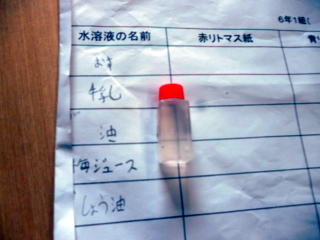 6年1組(
水溶液の名前 赤リトマス紙 青リ
お酢
牛乳
油
梅ジュース
しょう油